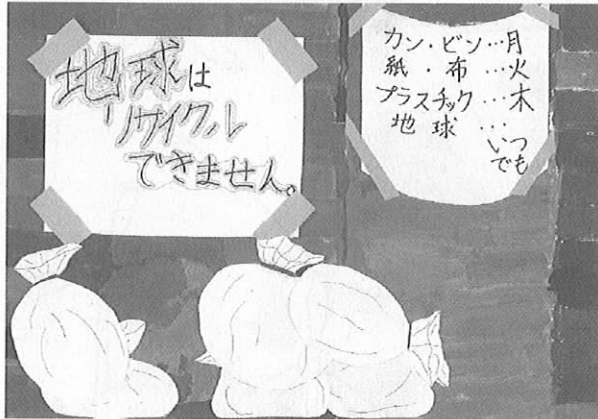 地球は
リサイクル
できません。
カン・ビン…月
紙・布…火
プラスチック…木
地球…
いつ
でも